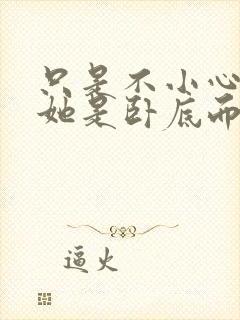 只是不小心
她是卧底而
逼火